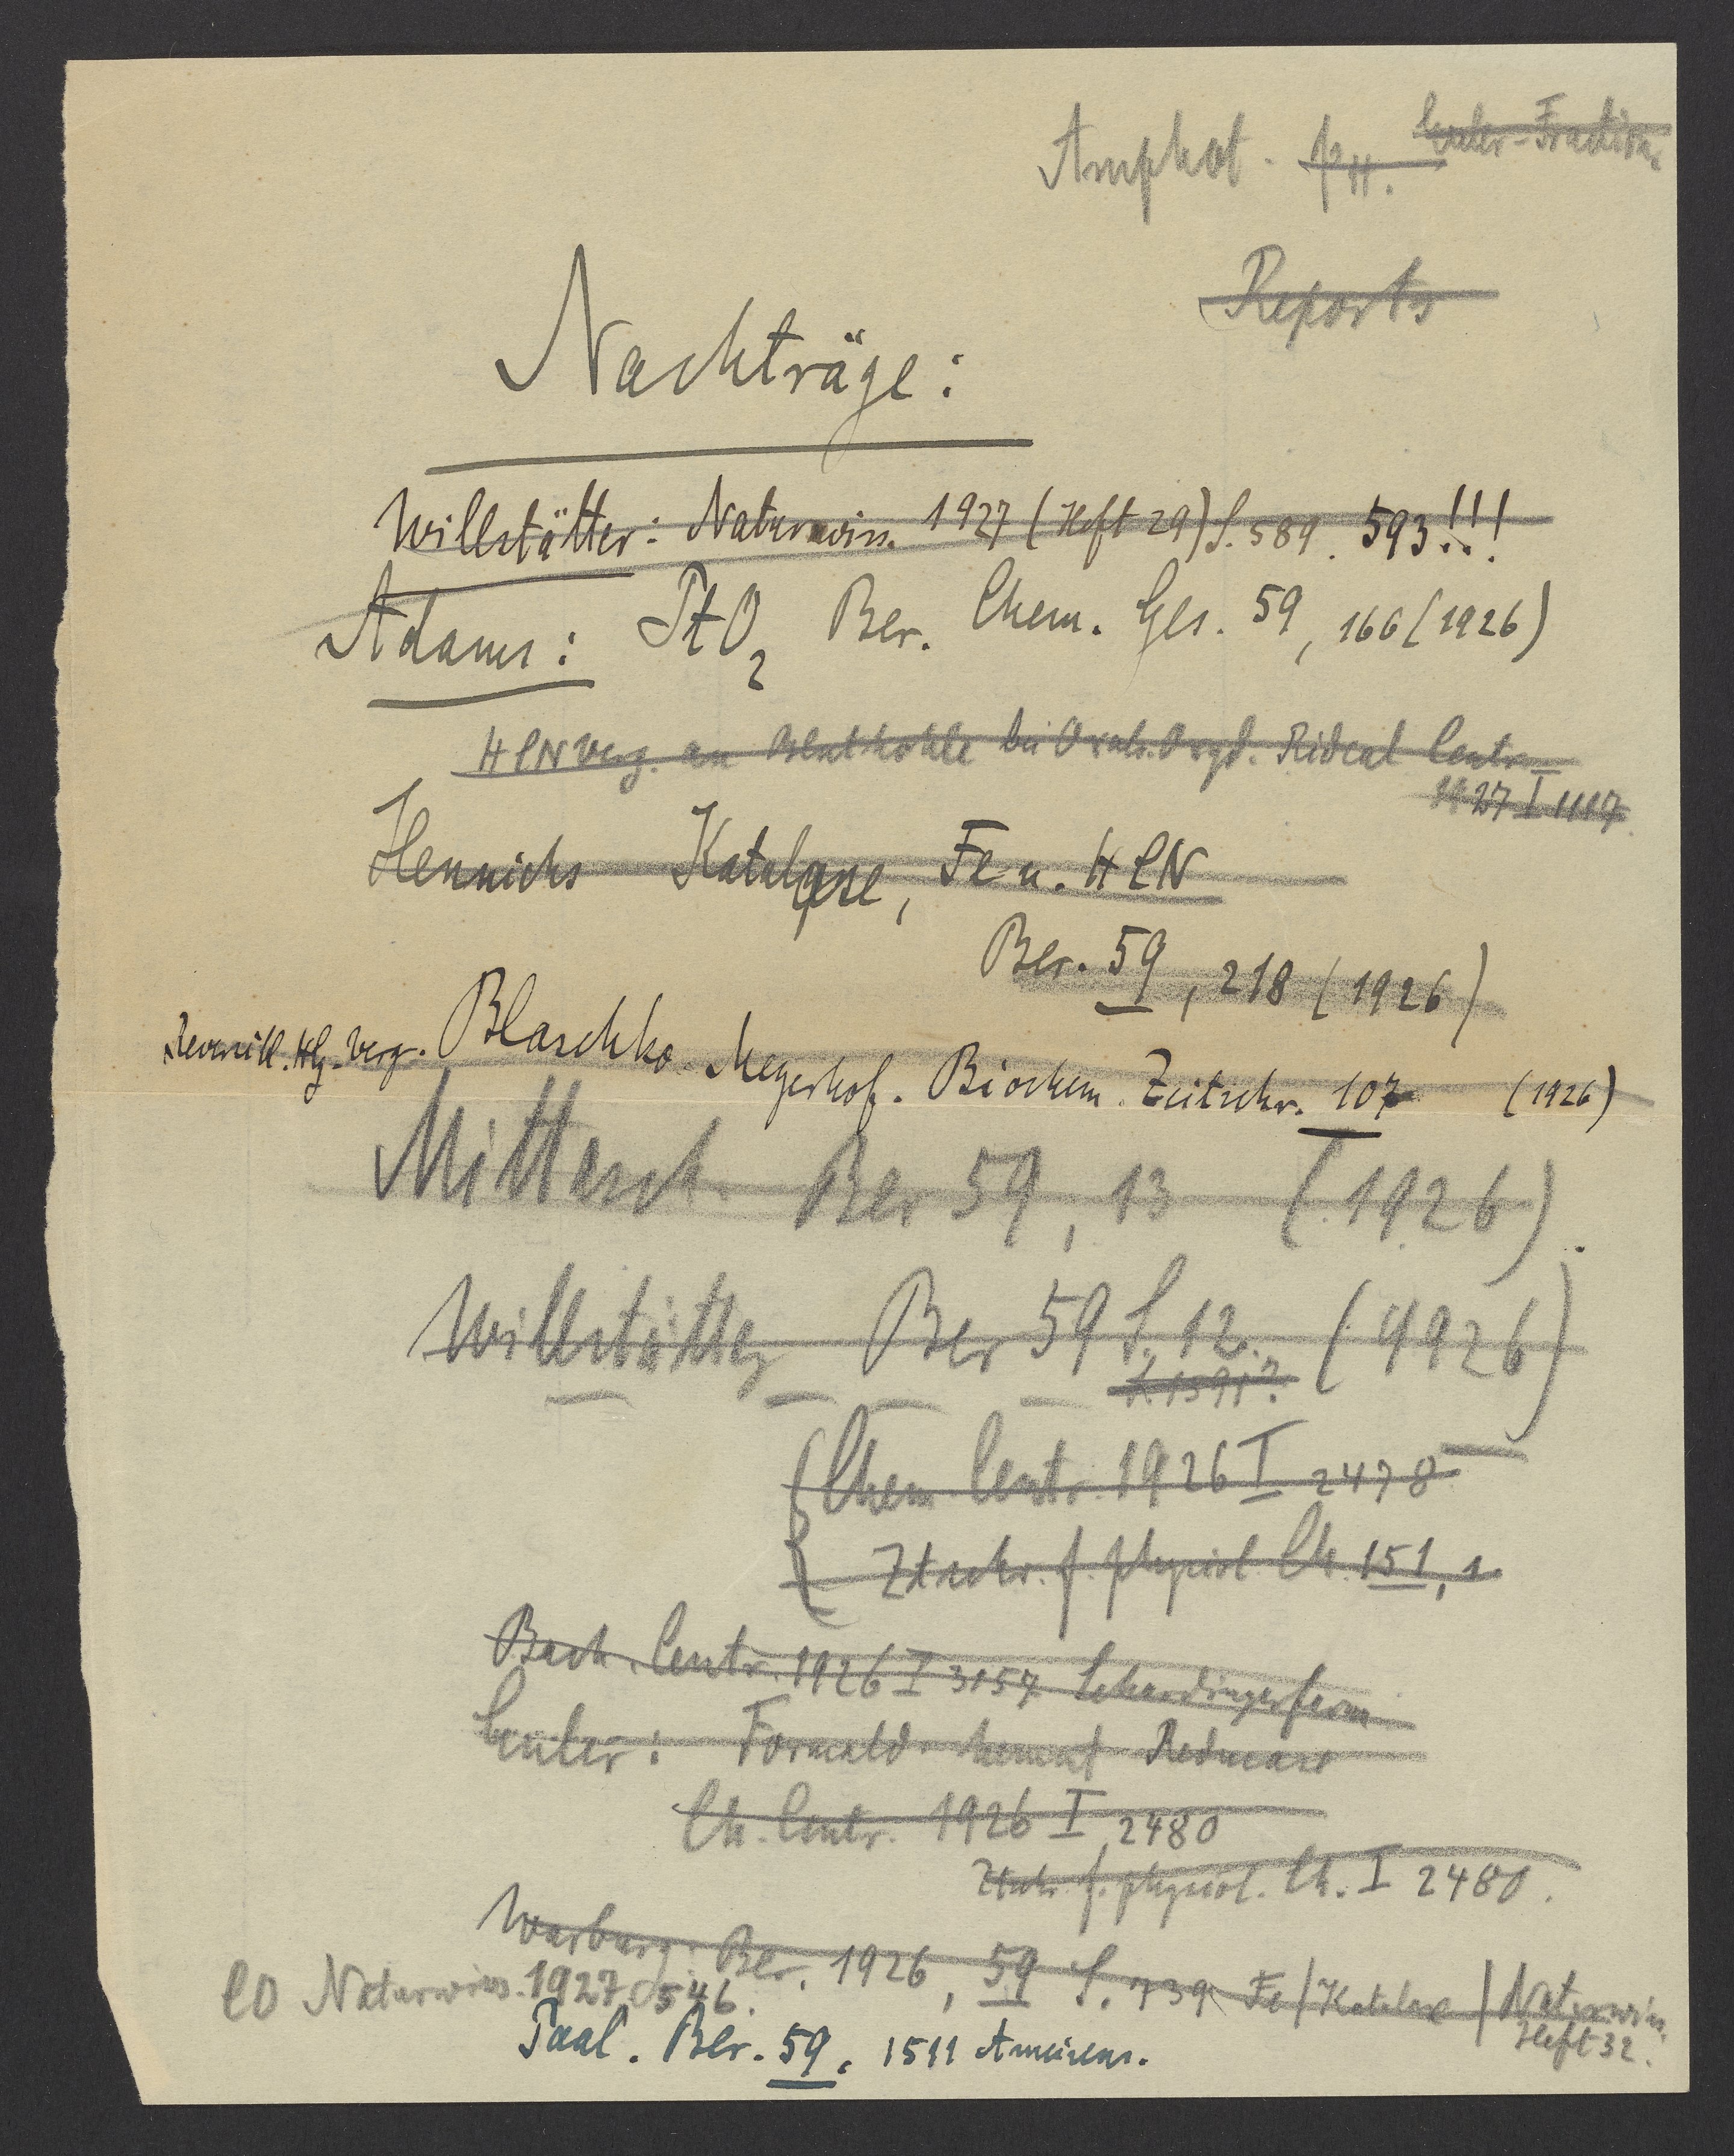 Amphot. pH. Euler-Fraction
Reports
Nachträge:
Willstätter: Naturwiss. 1927 (Heft 29) S. 589. 593!!!
Adams: PtO2 Ber. Chem. Ges. 59, 166 (1926)
HCN Verg. an Blutkohle bei Oxals. Oxyd. Rideal Centr.
1927 I 1117
Hennichs Katalase, Fe u. HCN
Ber. 59, 218 (1926)
Verg. Blaschko. Meyerhof. Biochem. Zeitschr. 107 (1926)
Mittasch. Ber 59, 13 (1926).
Willstätter Ber 59 S. 12. (1926)
S. 1591?
Chem. Centr. 1926 I 2478
Ztschr. f. physiol. Ch. 151, 1.
Bach. Centr. 1926 I 3157 Schardingerferm
Euler: Formald. hemmt Reducase
Ch. Centr. 1926 I, 2480
Ztschr. f. physiol. Ch. I 2480.
Warburg: Ber. 1926, 59 S. 739 Fe/Katalase / Naturwiss.
Heft 32.
CO Naturwiss. 1927 S 546.
Paal. Ber. 59, 1511 Ameisens.